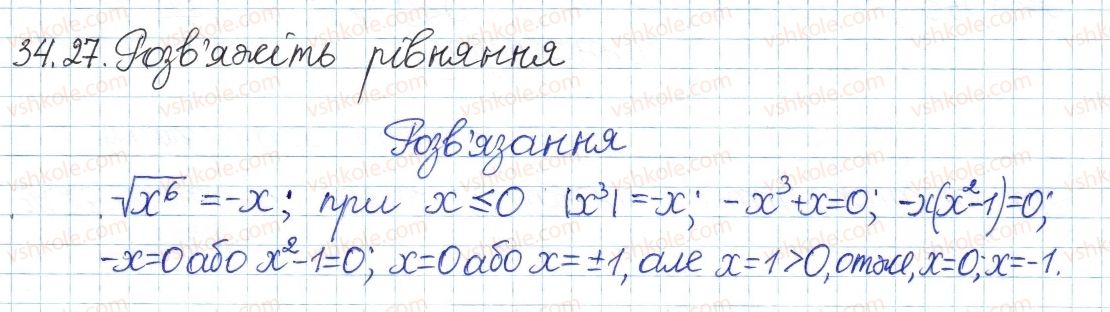 34.27. Розв'яжіть рівняння
Розв'язання
√x⁶ = -x; при x ≤ 0 |x³| = -x; -x³+x=0; -x(x²-1)=0;
-x=0 або x²-1=0; x=0 або x=±1, але x=1>0, отже, x=0; x=-1.